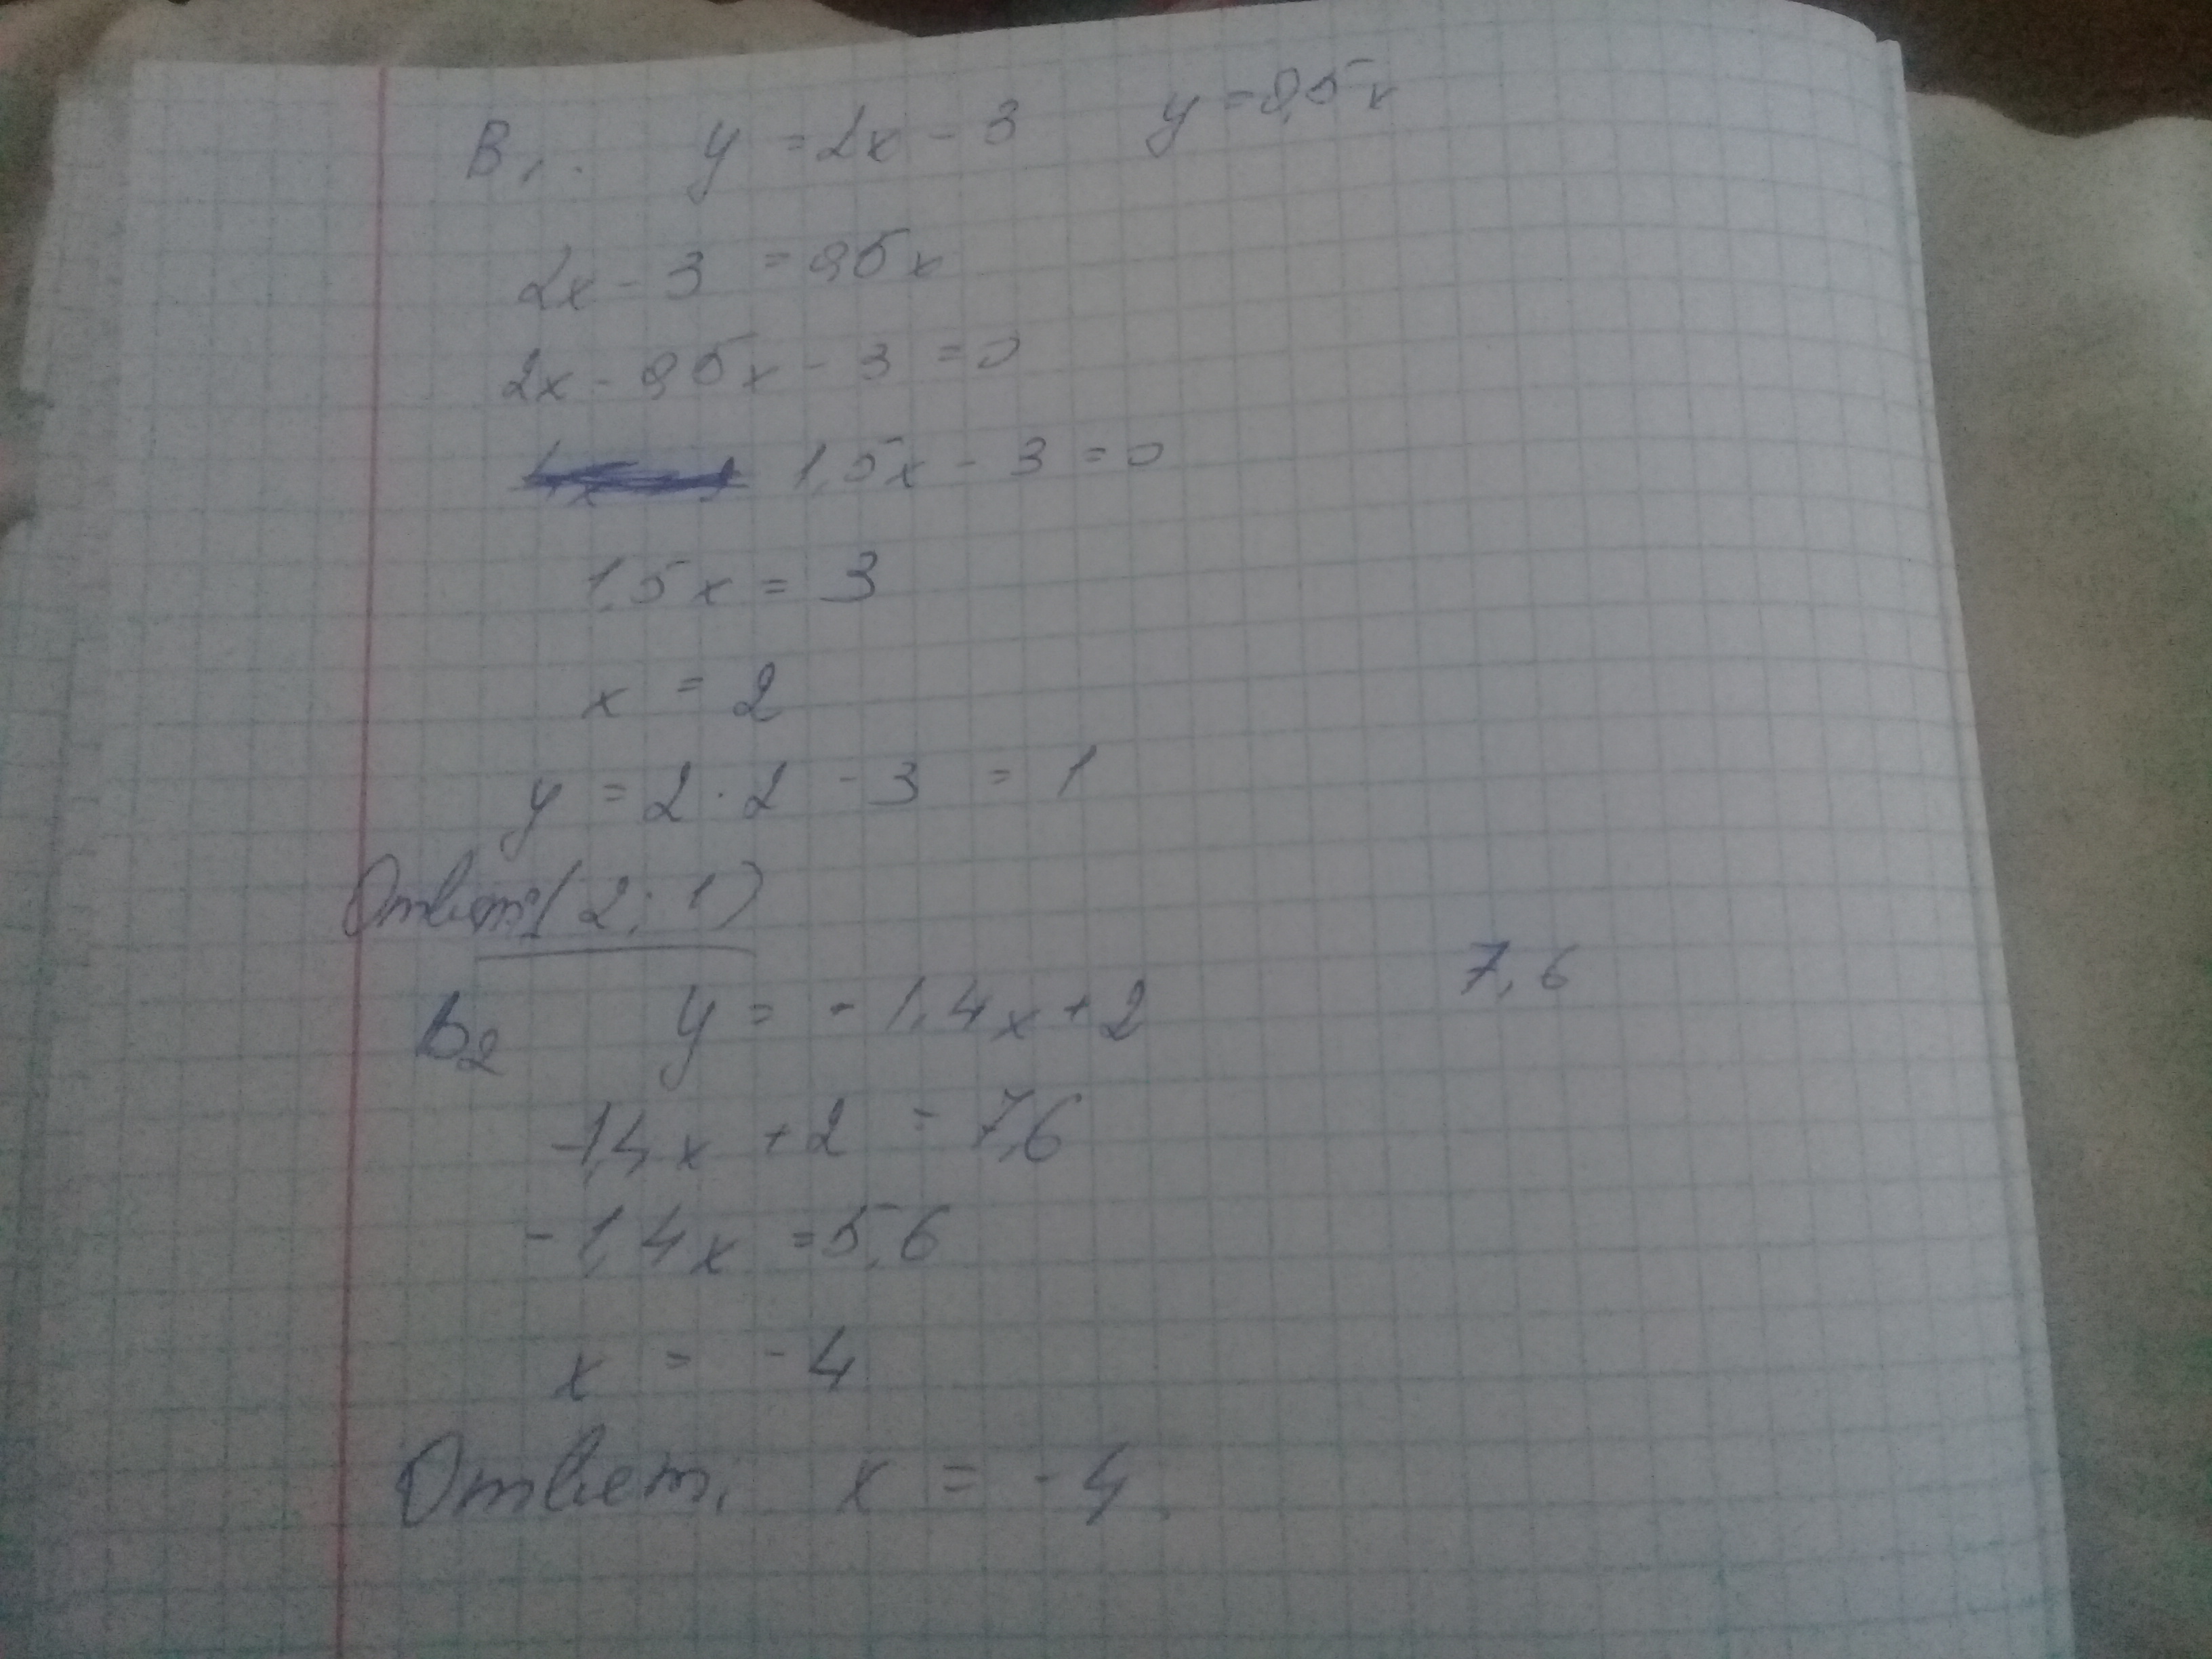 B1. y = 2x - 3 y = 0,5x
2x - 3 = 0,5x
2x - 0,5x - 3 = 0
1,5x - 3 = 0
1,5x = 3
x = 2
y = 2 · 2 - 3 = 1
Ответ: (2; 1)
B2 y = -1,4x + 2 7,6
-1,4x + 2 = 7,6
-1,4x = 5,6
x = -4
Ответ. x = -4